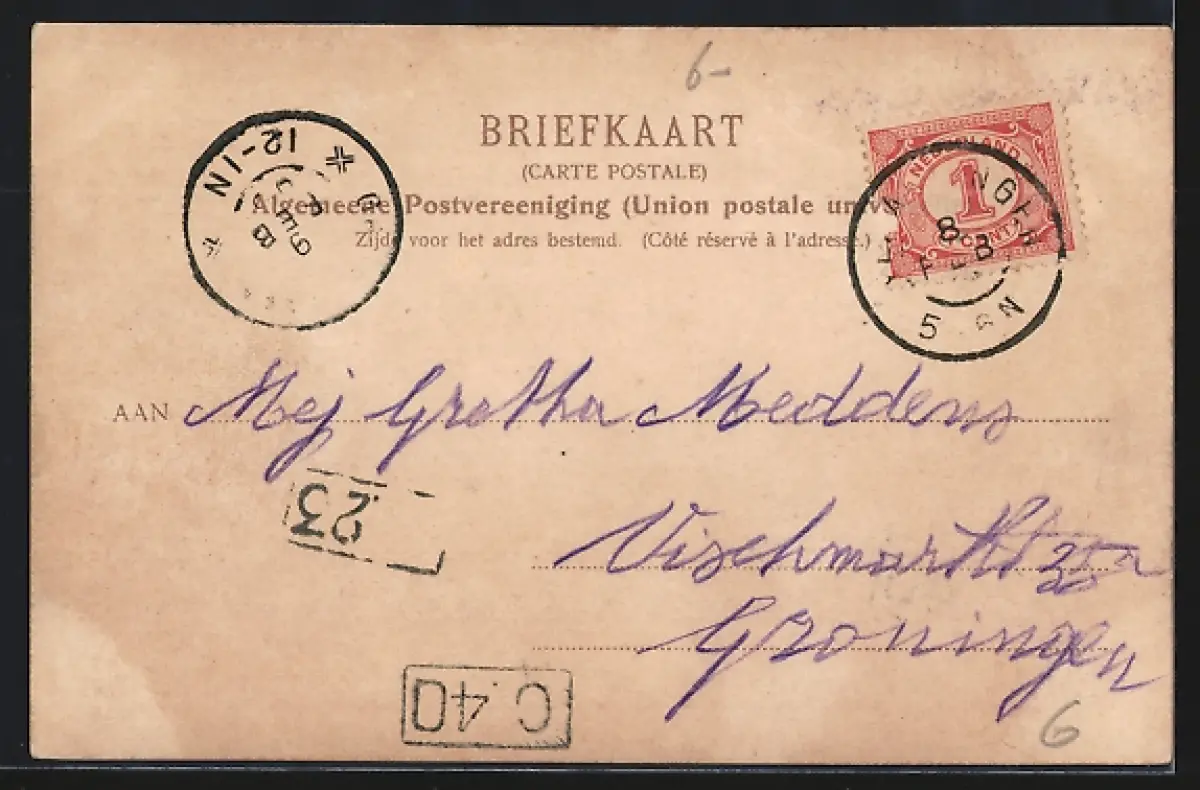 6-
BRIEFKAART
(CARTE POSTALE)
Algemeene Postvereeniging (Union postale
Zijde voor het adres bestemd. (Côté réservé à l'adresse.)
NEDERLAND
1
CENT
8 FEB
5 8N
12-1N
8 FEB
AAN Mej Gretha Meddens
23
Vischmarkt
Groningen
C.40
6